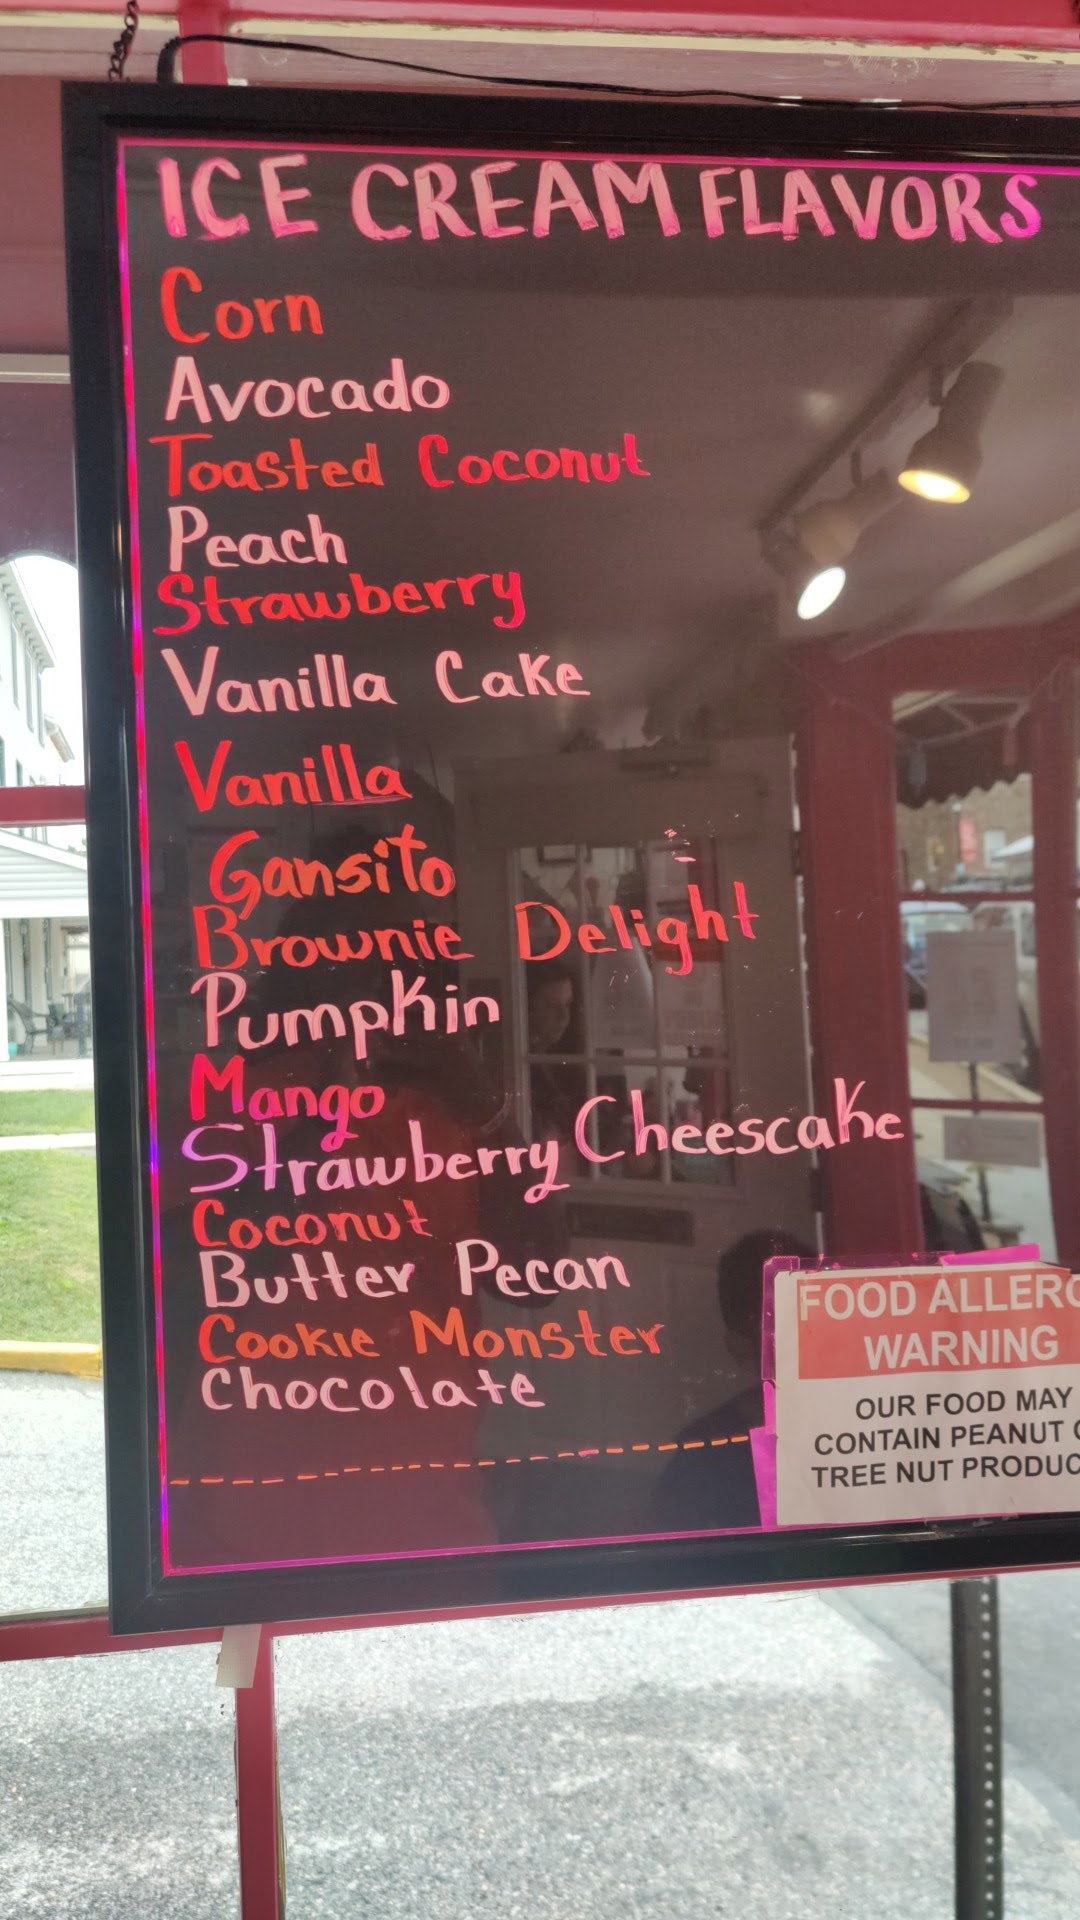 ICE CREAM FLAVORS
Corn
Avocado
Toasted Coconut
Peach
Strawberry
Vanilla Cake
Vanilla
Gansito
Brownie Delight
Pumpkin
Mango
Strawberry Cheescake
Coconut
Butter Pecan
Cookie Monster
Chocolate
FOOD ALLERG
WARNING
OUR FOOD MAY
CONTAIN PEANUT
TREE NUT PRODUC